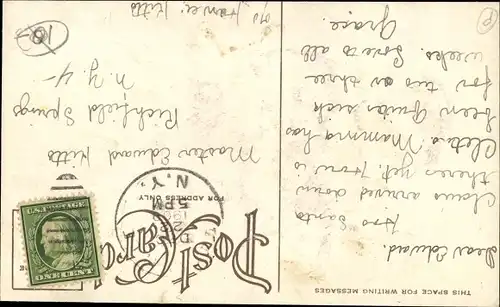 THIS SPACE FOR WRITING MESSAGES
Dear Edward.
Has Santa
Claus arrived down
there yet. How is
Cleta. Mamma has
been quite sick
for two or three
weeks. Love to all
Grace.
Post Card
FOR ADDRESS ONLY
D
N.Y.
5 PM
U.S. POSTAGE
ONE CENT
Master Edward Kitts
Richfield Springs
N. Y.
Kitts
10